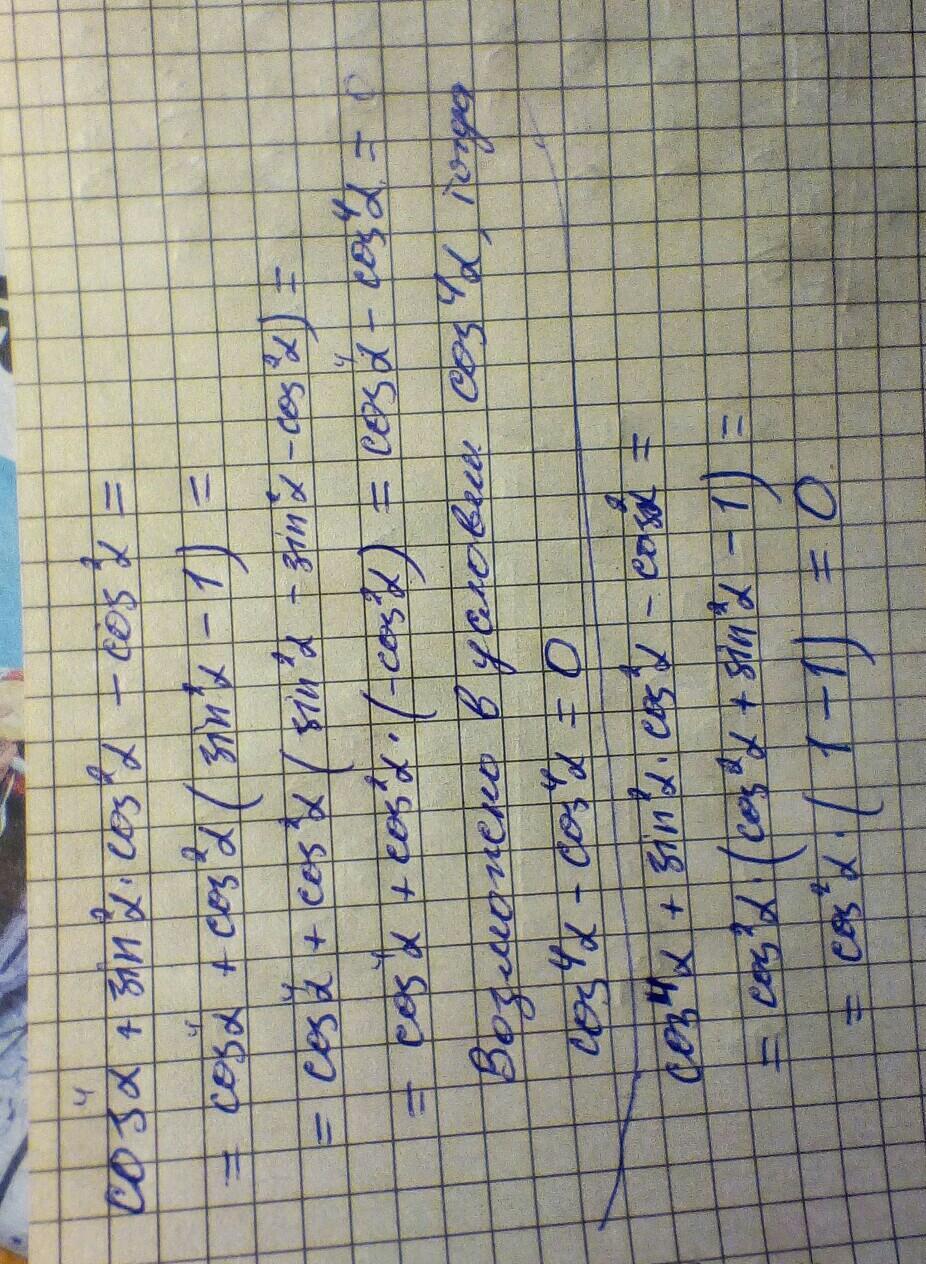 cos⁴α + sin²α · cos²α - cos²α =
= cos⁴α + cos²α (sin²α - 1) =
= cos⁴α + cos²α (sin²α - sin²α - cos²α) =
= cos⁴α + cos²α · (-cos²α) = cos⁴α - cos⁴α = 0
Возможно в условии cos⁴α, тогда
cos⁴α - cos⁴α = 0
cos⁴α + sin²α · cos²α - cos²α =
= cos²α · (cos²α + sin²α - 1) =
= cos²α · (1 - 1) = 0